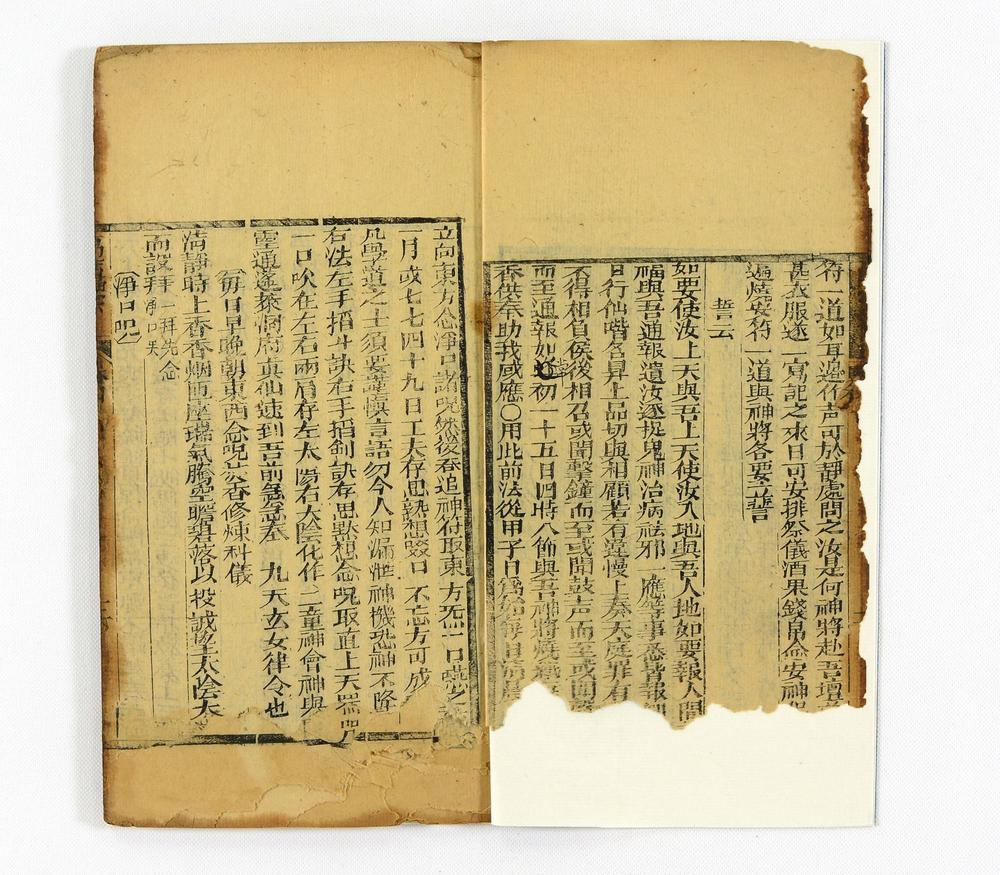 符一道如耳邊作声可於静處問之汝是何神將赴吾壇
甚衣服逐一寫記之來日可安排祭儀酒果錢馬盆安神
遍燒安符一道與神將各要立誓
誓云
如要使汝上天與吾上天使汝入地與吾入地如要報人間
福與吾通報遺汝逐捉鬼神治病祛邪一應等事悉皆報
日行仙階各昇上品切與相顧若有違慢上奏天庭罪有
不得相負侯後相召或聞擊鐘而至或聞鼓声而至或聞
而至通報如迯初一十五日四時八節與吾神將燒
香供奉助我感應〇用此前法從甲子日爲始每日
立向東方念淨口諸呪然後吞追神符取東方炁一口嚥之
一月或七七四十九日工夫存思熟想啜口不忘方可成
凡學道之士須要謹慎言語勿令人知漏泄神機恐神不降
右法左手掐斗訣右手掐劍訣存思默想念呪取直上天罡炁
一口吹在左右兩肩存左太陽右太陰化作二童神會神與
靈通蓬萊洞府真仙速到吾前急急奉九天玄女律令也
每日早晚朝東西念呪焚香修煉科儀
清靜時上香香烟匝座瑞氣騰空瞻碧落以投誠望太陰太
而設拜一拜先念淨口天
淨口呪